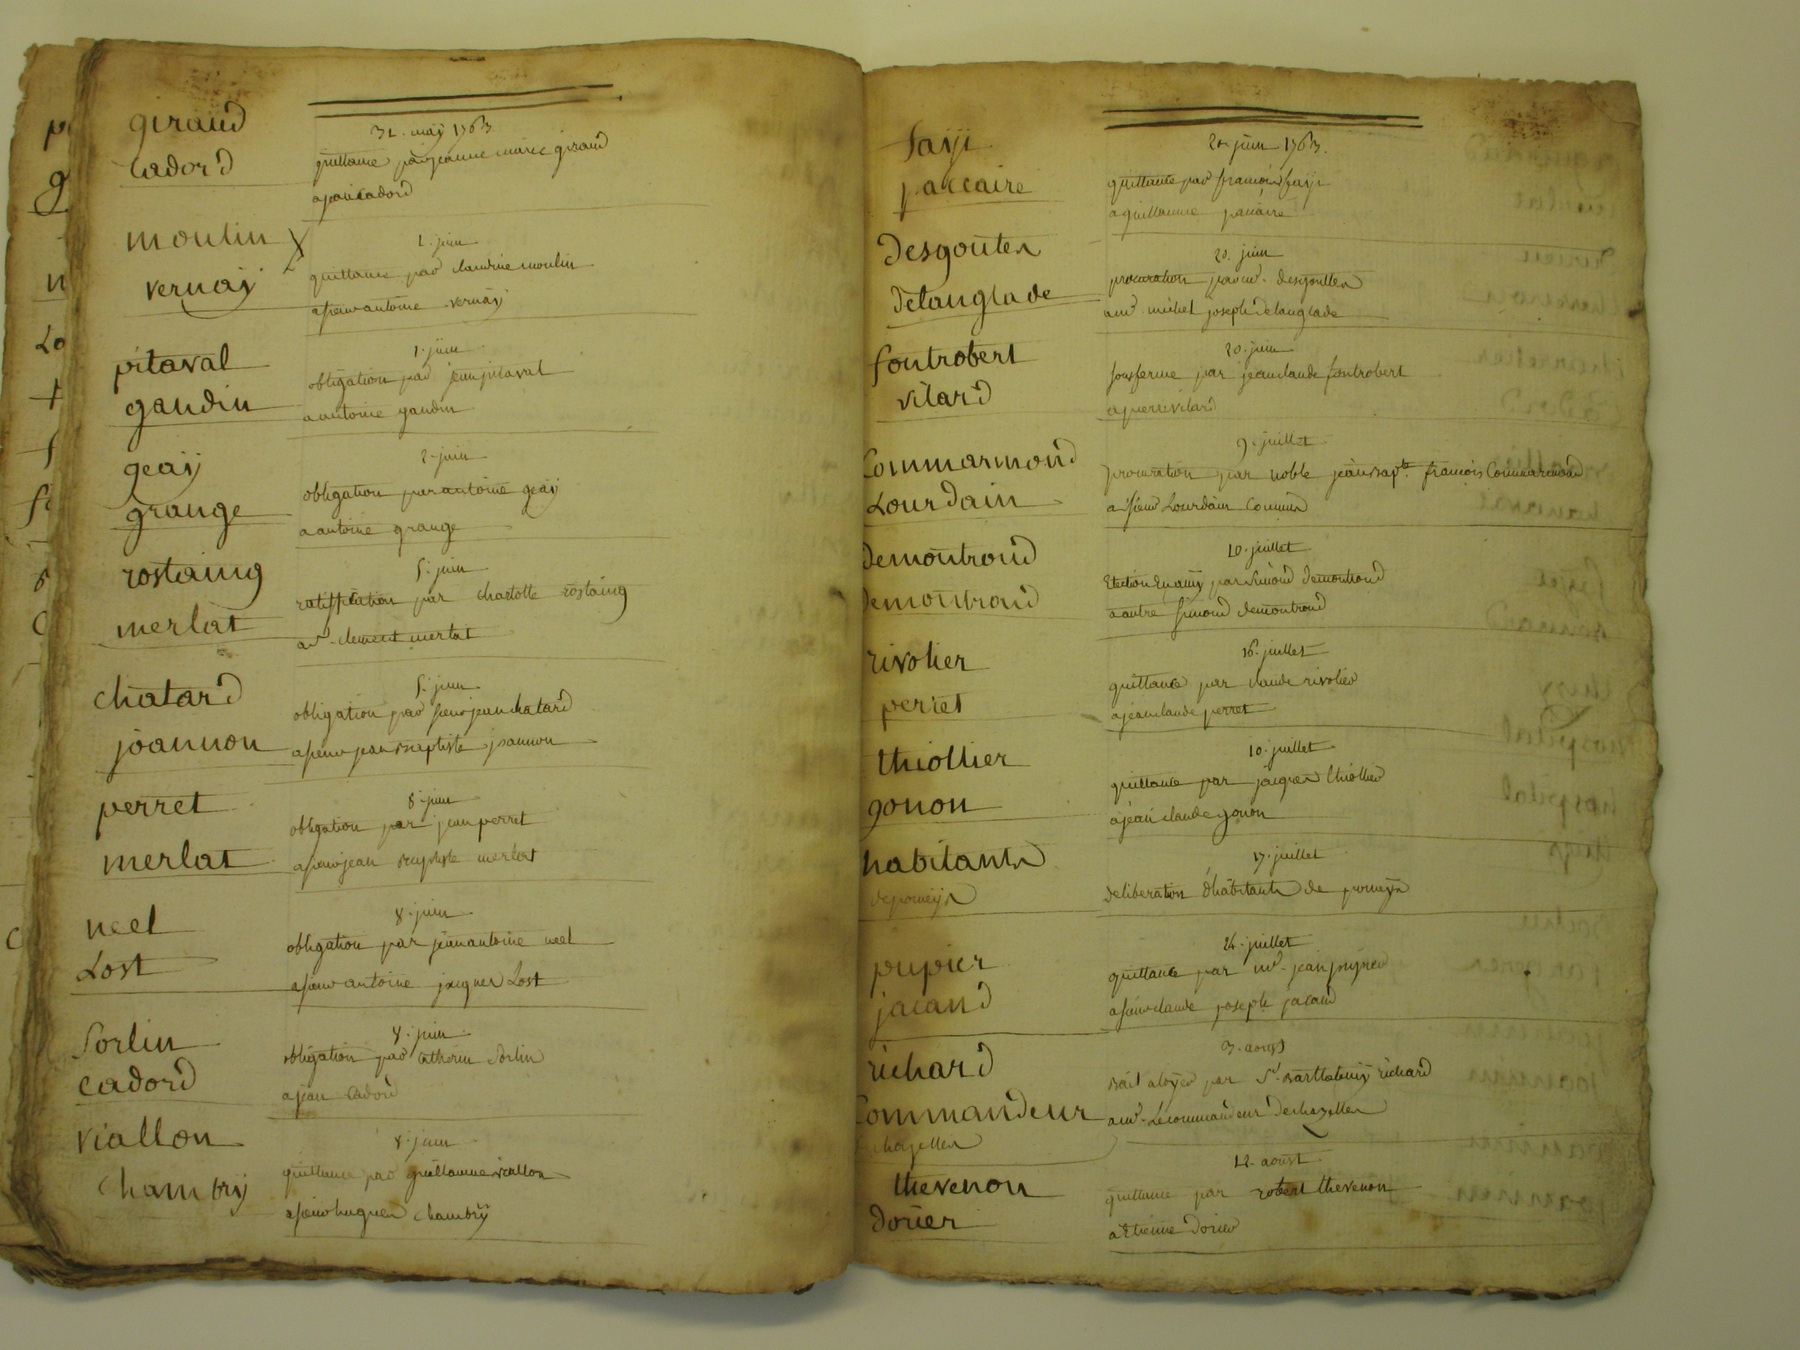 giraud
cadord
31. may 1763.
quittance par jeanne marie giraud
a jean cadord
moulin
vernay
1. juin
quittance par claudine moulin
a sieur antoine vernay
pitaval
gaudin
1. juin
obligation par jean pitaval
a antoine gaudin
geay
grange
2. juin
obligation par antoine geay
a antoine grange
rostaing
merlat
5. juin
ratiffication par charlotte rostaing
a mr. clement merlat
chatard
joannon
5. juin
obligation par sieur jean chatard
a sieur jean baptiste joannon
perret
merlat
8. juin
obligation par jean perret
a sieur jean baptiste merlat
neel
Lost
8. juin
obligation par jean antoine neel
a sieur antoine jacques Lost
Sorlin
cadord
8. juin
obligation par catherin Sorlin
a jean Cadord
viallon
chambry
8. juin
quittance par guillaume viallon
a sieur hugues chambry
fayi
paccaire
20. juin 1763.
quittance par francois fayi
a guillaume pacaire
Desgoutes
Delanglade
20. juin
procuration par mr. desgouttes
a mr. michel joseph delanglade
fontrobert
vilard
20. juin
sousferme par jean claude fontrobert
a pierre vilard
Commarmond
Lourdain
9. juillet
procuration par noble jean bapte. francois Commarmond
a sieur Lourdain
demontrond
demontrond
10. juillet
Election En amy par simond demontrond
a autre simond demontrond
rivolier
perret
16. juillet
quittance par claude rivolier
a jean claude perret
thiollier
gonon
10. juillet
quittance par jacques thiollier
a jean claude gonon
habitants
de pomeys
17. juillet
deliberation d'habitants de pomeys
pupier
jacand
24. juillet
quittance par mr. jean pupier
a sieur claude joseph jacand
richard
Commandeur
chazelles
3. aoust
bail a loyer par Sr. barthelemy richard
a mr. Le commandeur de chazelles
thevenon
dorier
12. aoust
quittance par robert thevenon
a Etienne dorier